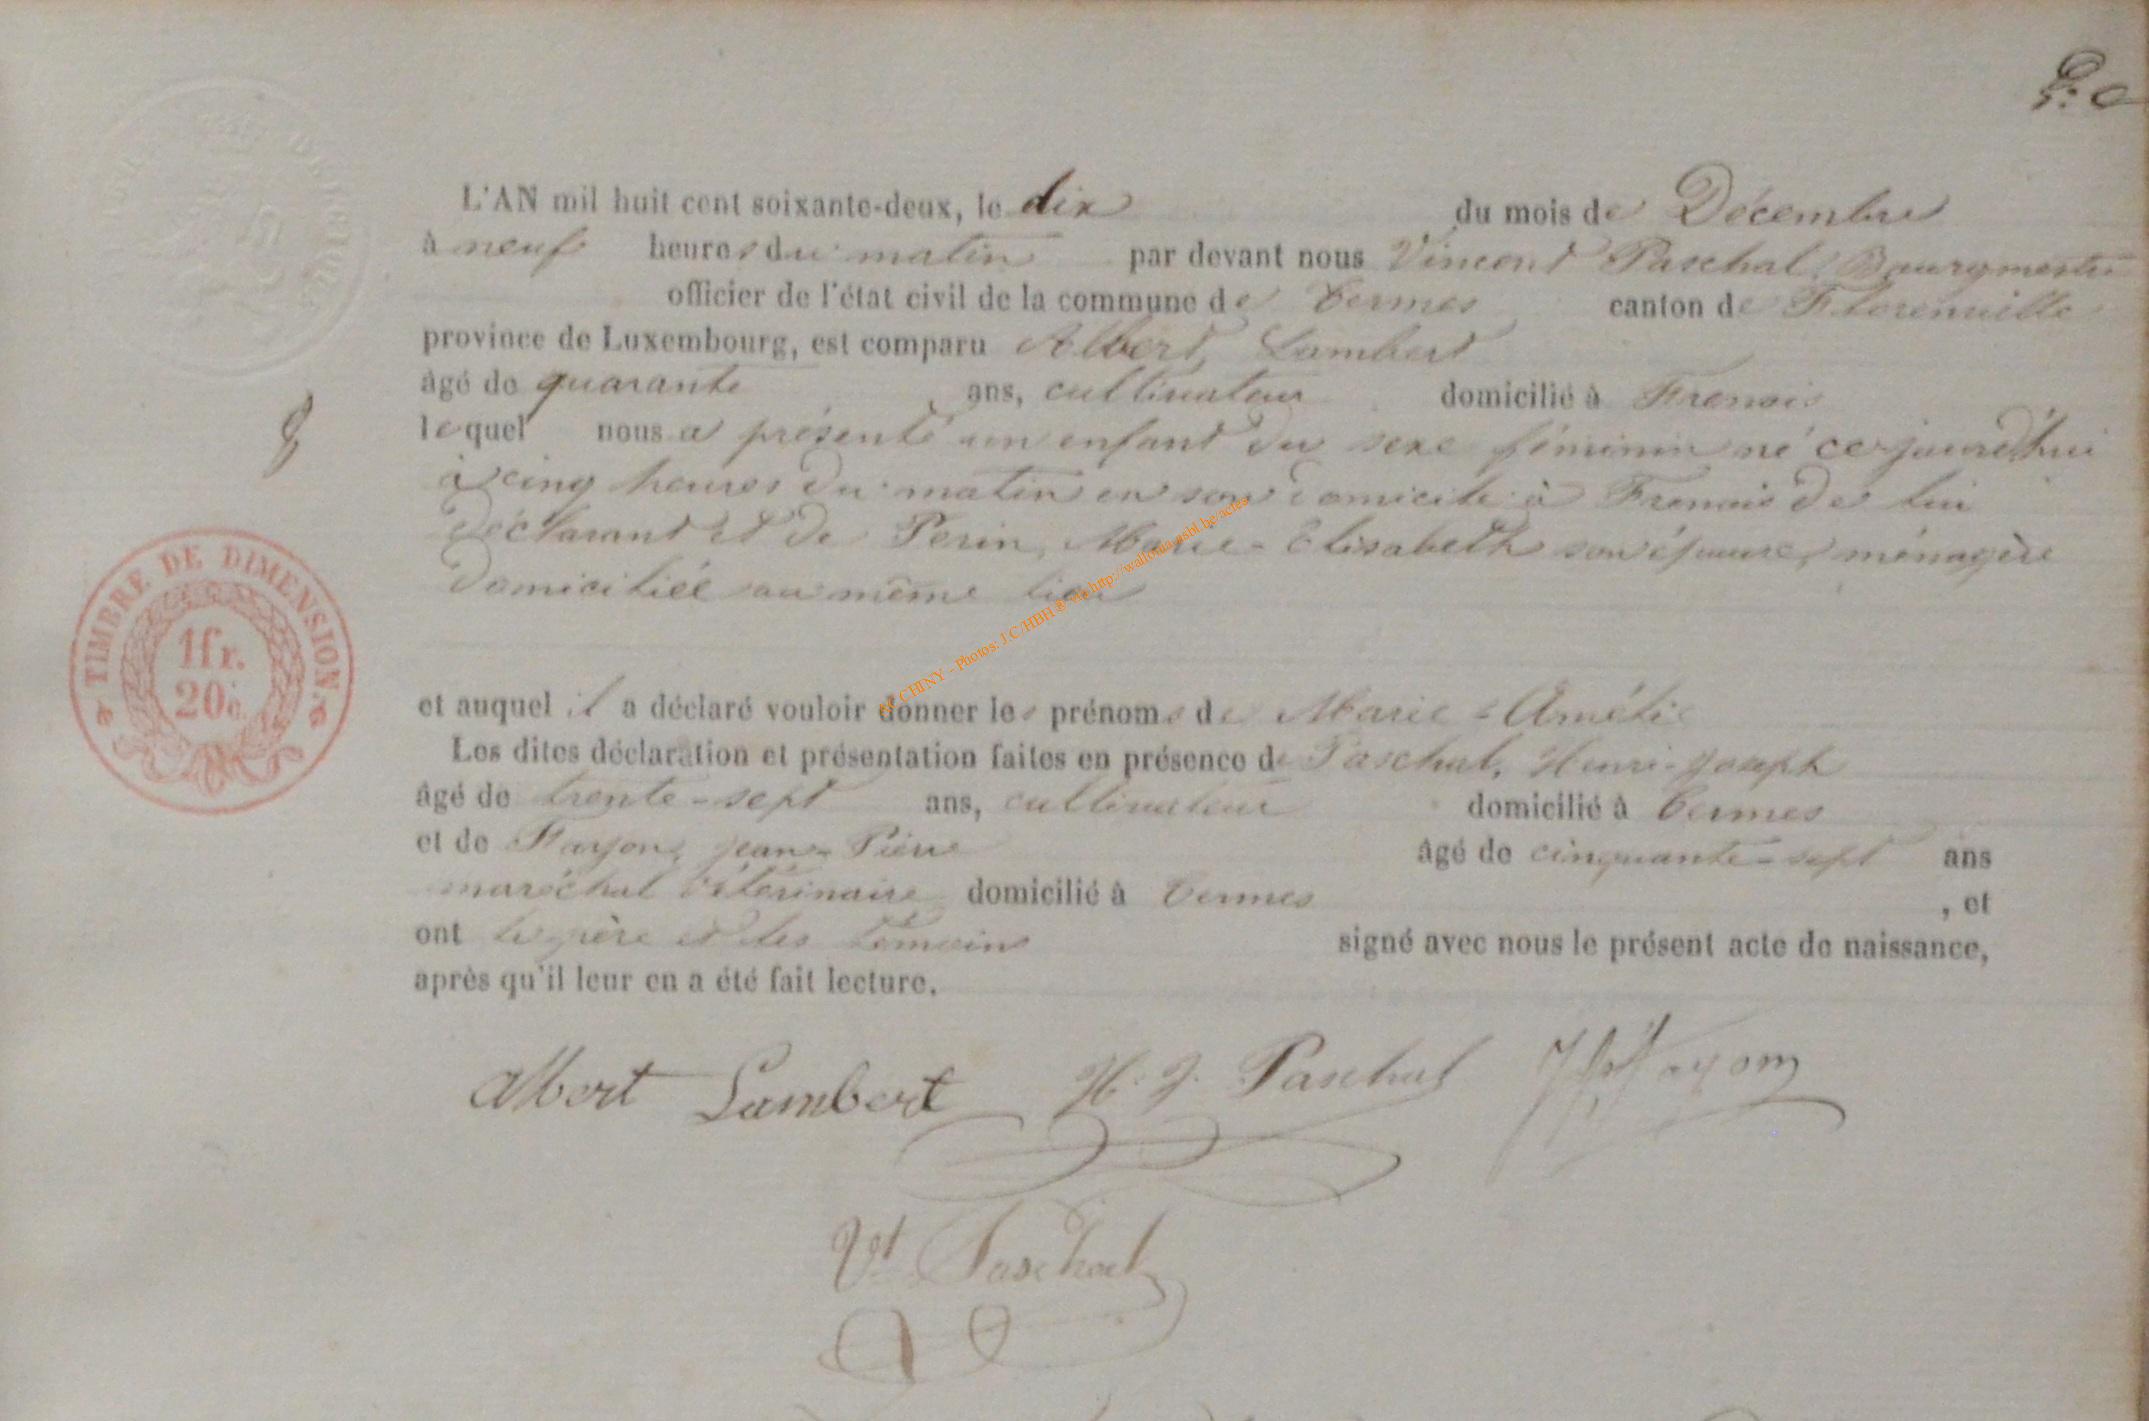 L'AN mil huit cent soixante-deux, le dix du mois de Décembre
à neuf heures du matin par devant nous Vincent Paschal, Bourgmestre
officier de l'état civil de la commune de Termes canton de Florenville
province de Luxembourg, est comparu Albert, Lambert
âgé de quarante ans, cultivateur domicilié à Frenois
lequel nous a présenté un enfant du sexe féminin né cejourd'hui
à cinq heures du matin en son domicile à Frenois de lui
déclarant et de Perin, Marie-Elisabeth son épouse, ménagère
domiciliée au même lieu
et auquel il a déclaré vouloir donner les prénoms de Marie-Amélie
Les dites déclaration et présentation faites en présence de Paschal, Henri-Joseph
âgé de trente-sept ans, cultivateur domicilié à Termes
et de Fayon, Jean-Pierre âgé de cinquante-sept ans
maréchal vétérinaire domicilié à Termes , et
ont le père et les témoins signé avec nous le présent acte de naissance,
après qu'il leur en a été fait lecture.
Albert Lambert H. J. Paschal JP Fayon
Vt Paschal
TIMBRE DE DIMENSION.
1 fr.
20 c.
AC CHINY - Photos: J.C/HBH ® via http://wallonia.asbl.be/actes